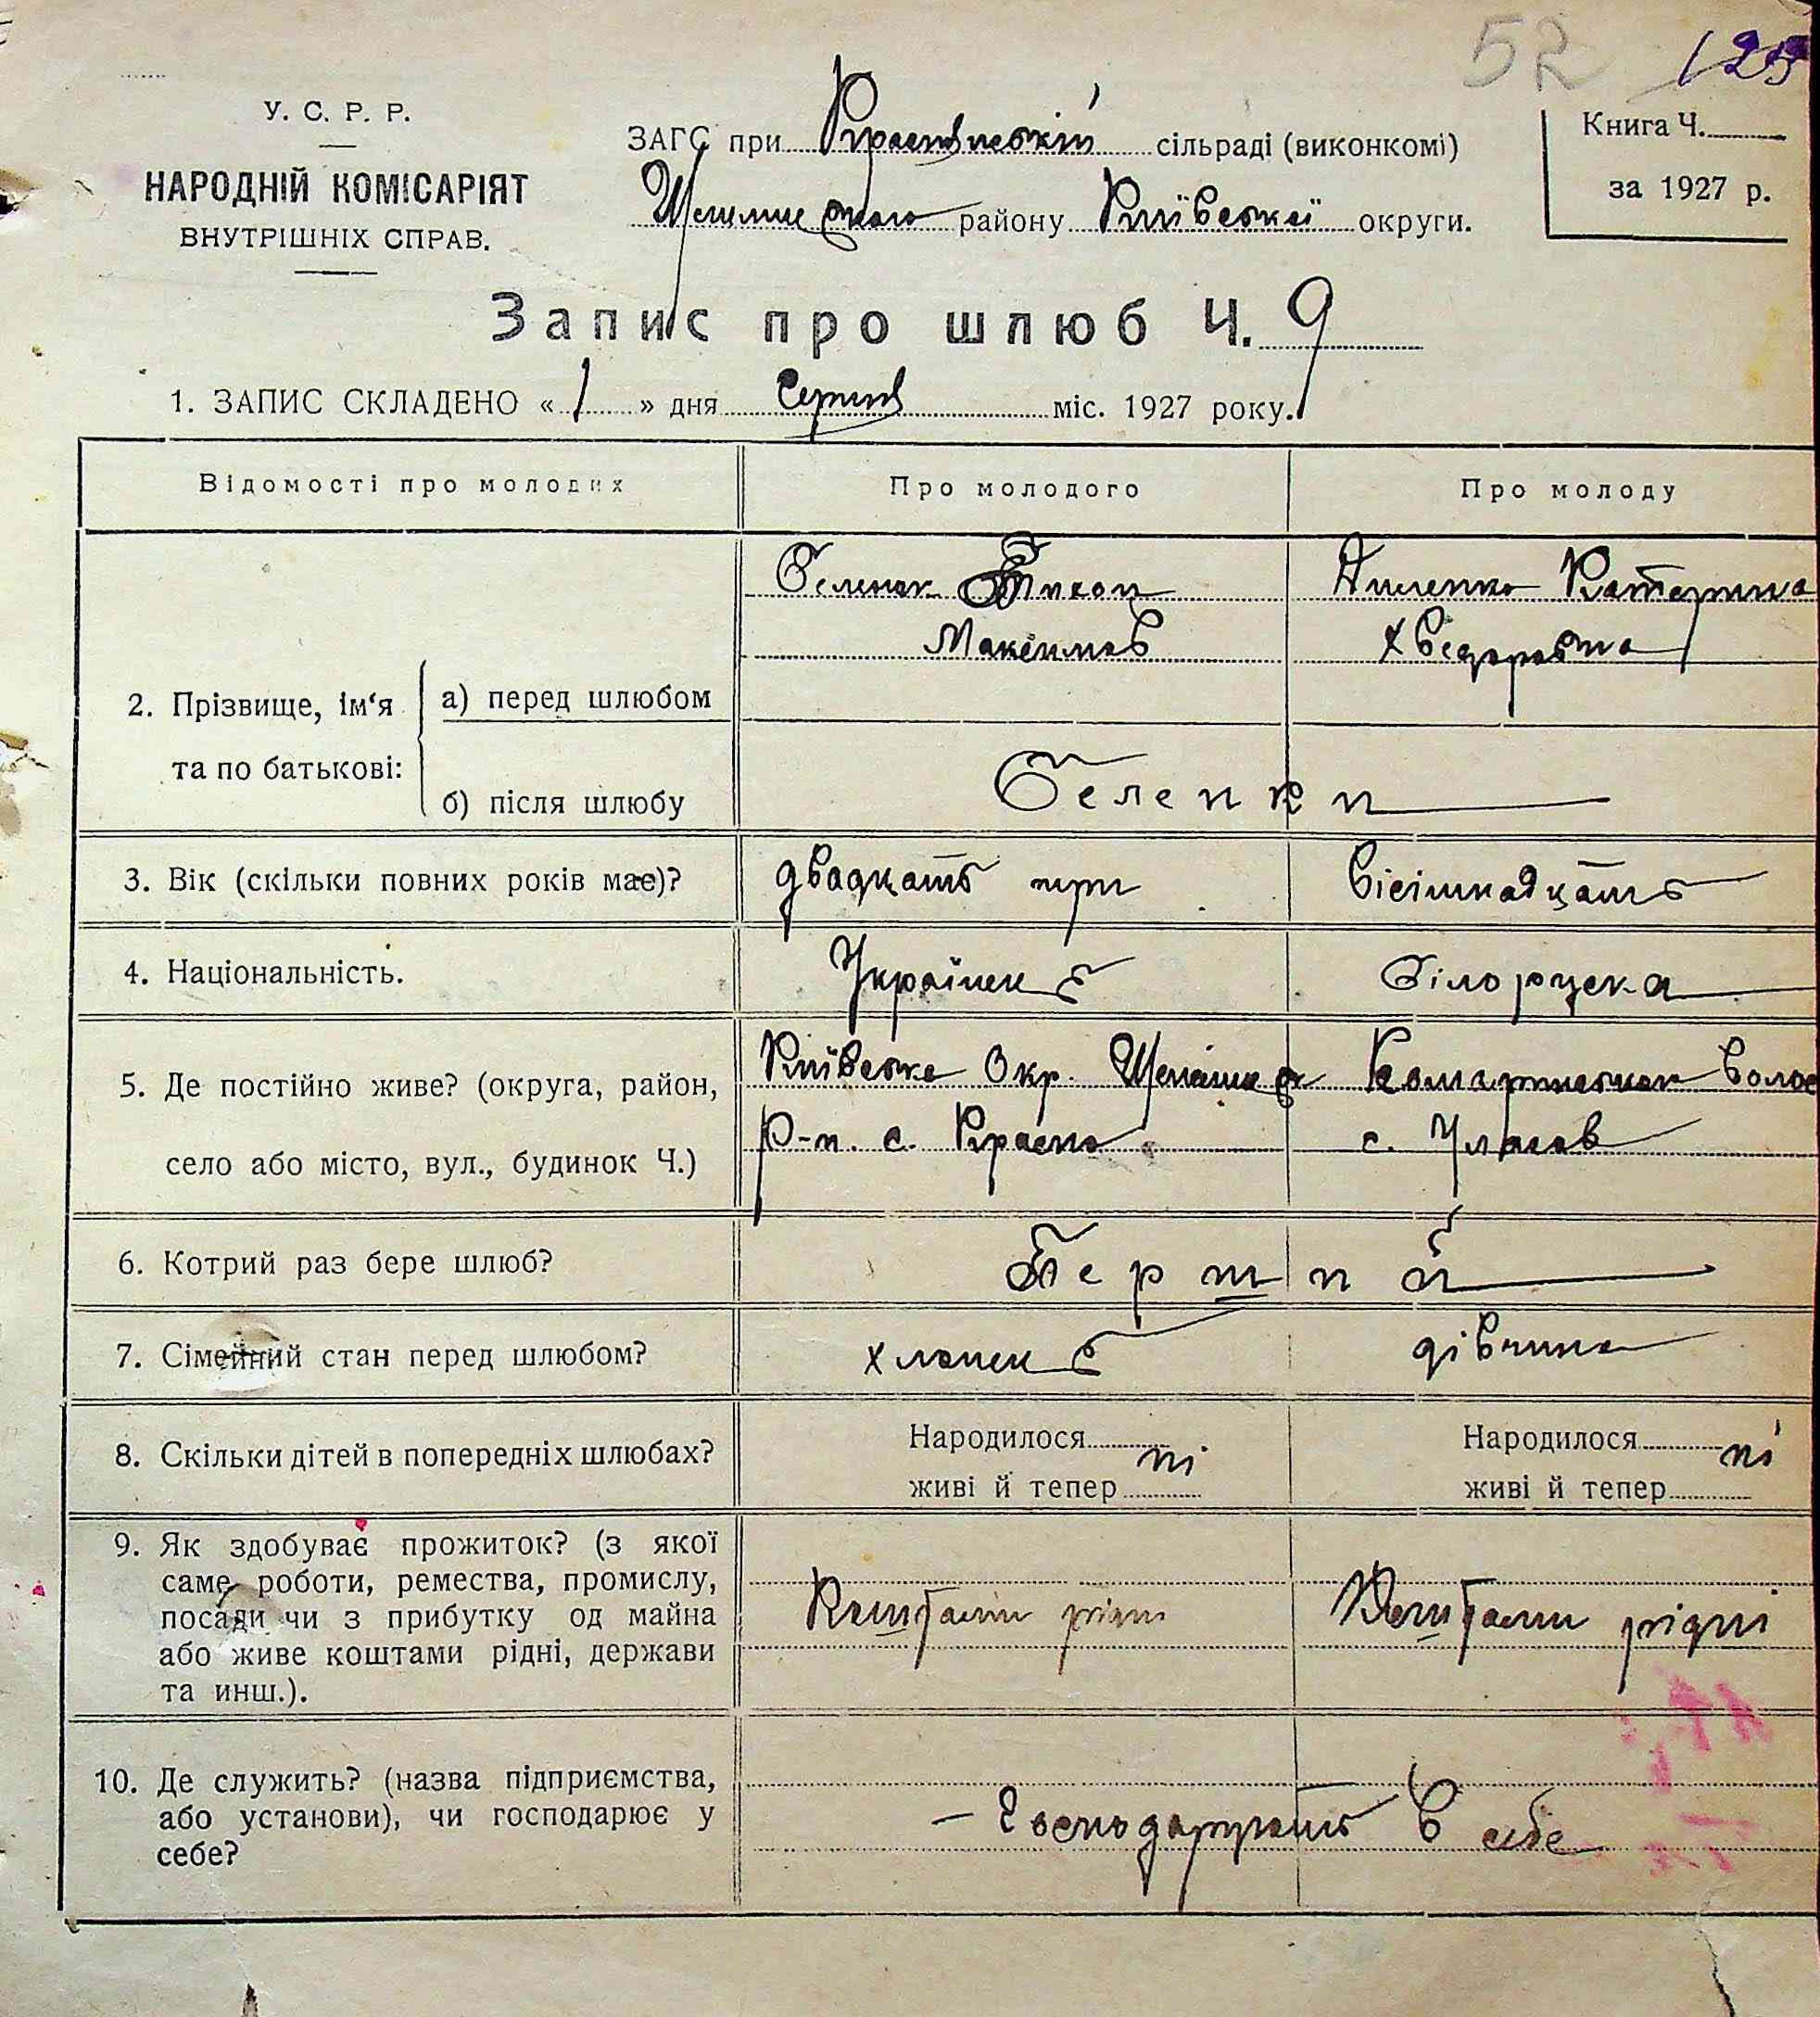 52 125
У. С. Р. Р.
НАРОДНІЙ КОМІСАРІЯТ
ВНУТРІШНІХ СПРАВ.
ЗАГС при Краснянській сільраді (виконкомі)
району Київської округи.
Книга Ч.
за 1927 р.
Запис про шлюб Ч. 9
1. ЗАПИС СКЛАДЕНО « 1 » дня Серпня міс. 1927 року.
Відомості про молодих
Про молодого
Про молоду
2. Прізвище, ім‘я та по батькові:
а) перед шлюбом
Максимов
Катерина
б) після шлюбу
Беленки
3. Вік (скільки повних років має)?
двадцать три
Вісімнадцать
4. Національність.
Українець
Білоруска
5. Де постійно живе? (округа, район,
село або місто, вул., будинок Ч.)
Київське Окр.
Р-н. с. Красно
с.
6. Котрий раз бере шлюб?
Перший
7. Сімейний стан перед шлюбом?
хлопець
дівчина
8. Скільки дітей в попередніх шлюбах?
Народилося
живі й тепер
ні
Народилося
живі й тепер
ні
9. Як здобуває прожиток? (з якої
саме роботи, ремества, промислу,
посади чи з прибутку од майна
або живе коштами рідні, держави
та инш.).
Коштами рідні
Коштами рідні
10. Де служить? (назва підприємства,
або установи), чи господарює у
себе?
— в себе